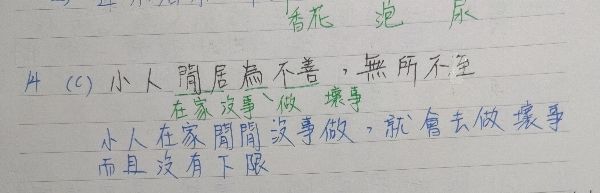 香花 泡 尿
14 (C) 小人閒居為不善，無所不至
在家沒事、做 壞事
小人在家閒閒沒事做，就會去做壞事
而且沒有下限